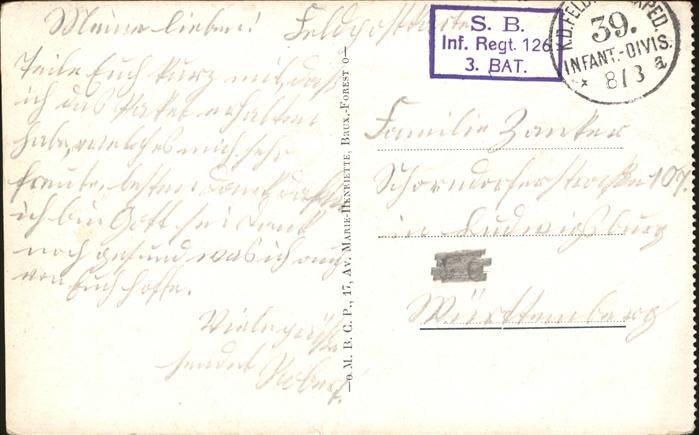 Meine lieben! Feldpostkarte
Teile Euch kurz mit, daß
ich das Paket erhalten
habe, welches mich sehr
freute, besten Dank dafür
ich bin Gott sei Dank
noch gesund was ich auch
von Euch hoffe.
Viele Grüße
sendet Robert.
o M. B. C. P., 17, Av. MARIE-HENRIETTE, BRUX.-FOREST o
S. B.
Inf. Regt. 126
3. BAT.
K.D. FELD
PED.
39.
INFANT.-DIVIS.
8/3 a
Familie Zanker
Schorndorferstraße 109.
in Ludwigsburg
Württemberg